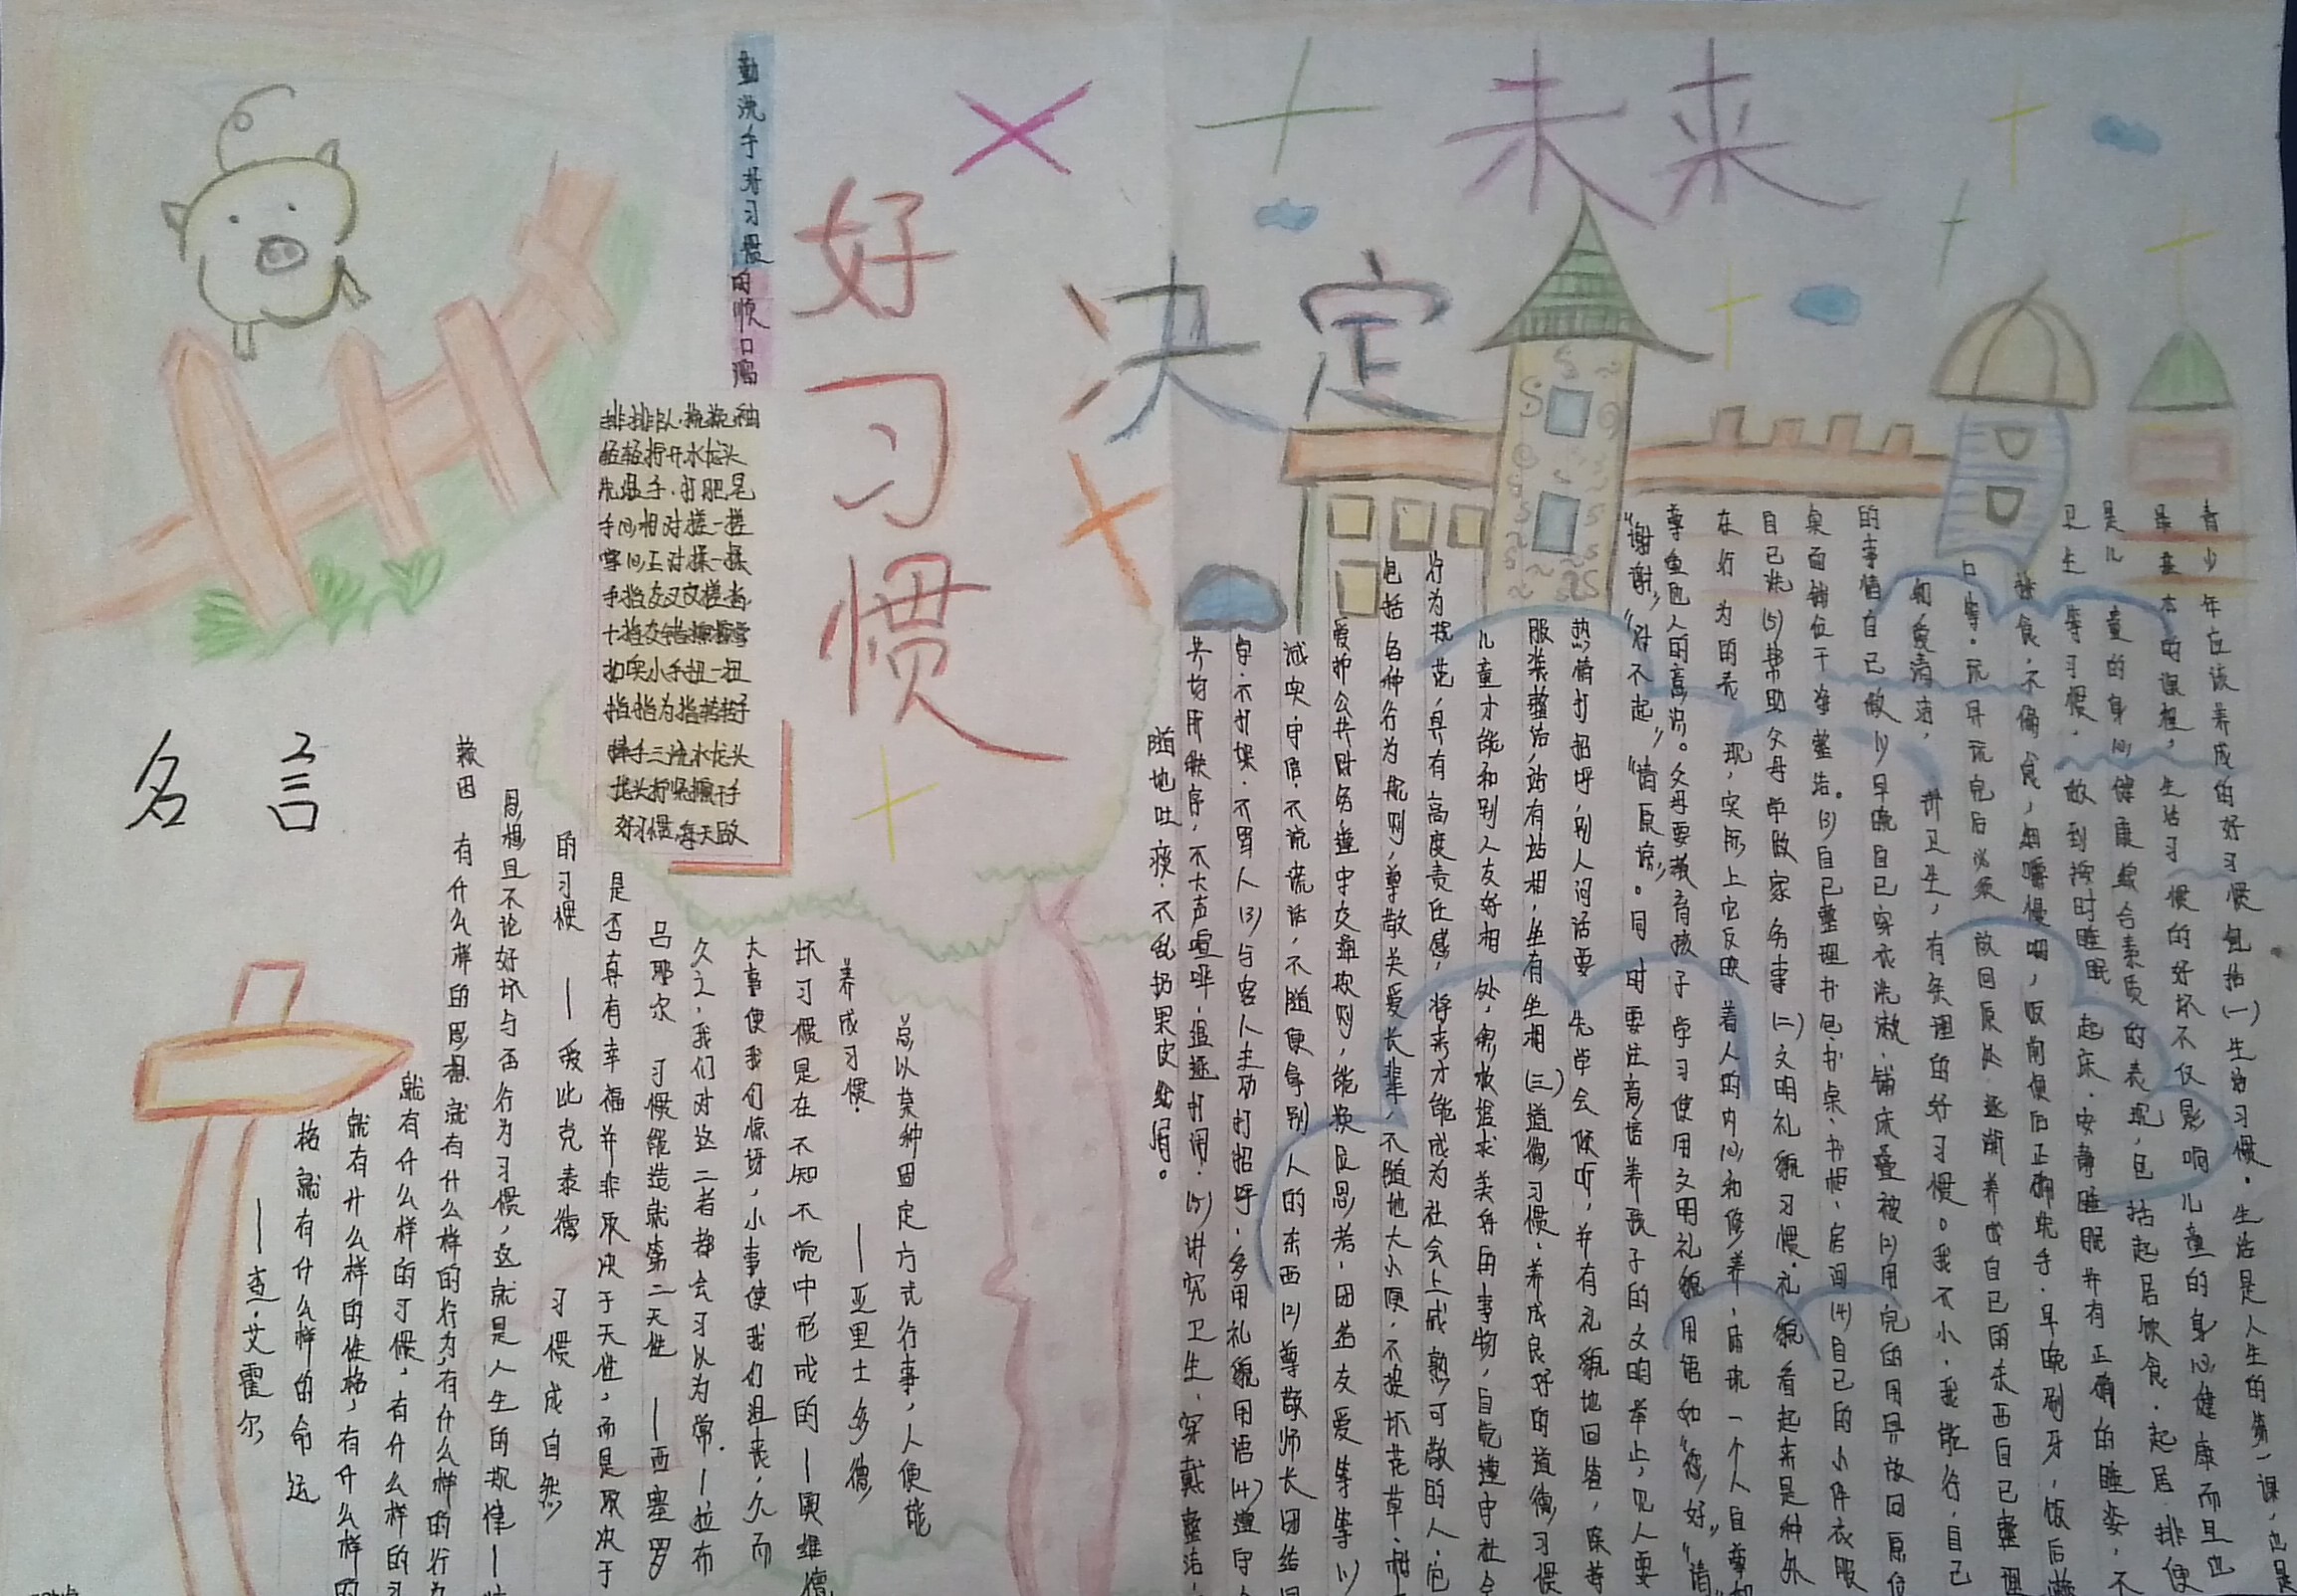 未来
决定
好习惯
勤洗手好习惯的顺口溜
排排队,挽挽袖
轻轻拧开水龙头
先湿手,打肥皂
手心相对搓一搓
掌心正对揉一揉
手指交叉文搓搓
十指交错擦擦掌
扣实小手扭一扭
指指为指转转手
捧手三洗水龙头
龙头拧紧擦干手
好习惯,每天做
青少年应该养成的好习惯包括(一)生活习惯。生活是人生的第一课,也是
最基本的课程,生活习惯的好坏不仅影响儿童的身心健康而且也
是儿童的身心健康综合素质的表现,包括起居饮食、起居、排便
卫生等习惯,做到按时睡眠起床、安静睡眠并有正确的睡姿,不
食,不偏食,细嚼慢咽,饭前便后正确洗手、早晚刷牙,饭后
口等,玩具玩完后必须放回原处逐渐养成自己的东西自己整理
和爱清洁,讲卫生,有条理的好习惯。我不小,我能行,自己
的事情自己做(1)早晚自己穿衣洗漱、铺床叠被(2)用完的用具放回原位
桌面铺位干净整洁。(3)自己整理书包、书桌、书柜、房间(4)自己的小件衣服
自己洗(5)帮助父母单做家务事(二)文明礼貌习惯。礼貌看起来是种外
在行为的表现,实际上它反映着人的内心和修养,启现一个人自尊和
尊重他人的意识。父母要教育孩子学习使用文明礼貌用语如“您好”“请”
“谢谢”“对不起”“请原谅”。同时要注意培养孩子的文明举止,见人要
热情打招呼,别人问话要先学会倾听,并有礼貌地回答,保持
服装整洁,站有站相,坐有坐相(三)道德习惯、养成良好的道德习惯
儿童才能和别人友好相处,勇敢追求美好的事物,自觉遵守社会
行为规范,具有高度责任感,将来才能成为社会上成熟,可敬的人,包
包括各种行为规则,尊敬关爱长辈,不随地大小便,不损坏花草、
爱护公共财务,遵守交通规则,能换位思考,团结友爱等等(1)
诚实,守信,不说谎话,不随便拿别人的东西(2)尊敬师长团结同
学,不打架,不骂人(3)与客人主动打招呼,多用礼貌用语(4)遵守公
共场所秩序,不大声喧哗、追逐打闹,(5)讲究卫生,穿戴整洁,
随地吐痰,不乱扔果皮纸屑。
总以某种固定方式行事,人便能
养成习惯. ——亚里士多德
坏习惯是在不知不觉中形成的—奥维德
大事使我们惊讶,小事使我们沮丧,久而
久之,我们对这二者都会习以为常.—拉布
吕耶尔 习惯能造就第二天性 —西塞罗
是否真有幸福并非取决于天性,而是取决于
的习惯 —爱比克泰德 习惯成自然
思想且不论好坏与否行为习惯,这就是人生的规律—
赖因 有什么样的思想就有什么样的行为,有什么样的行为
就有什么样的习惯,有什么样的习
就有什么样的性格,有什么样的
格就有什么样的命运
—查·艾霍尔
名言